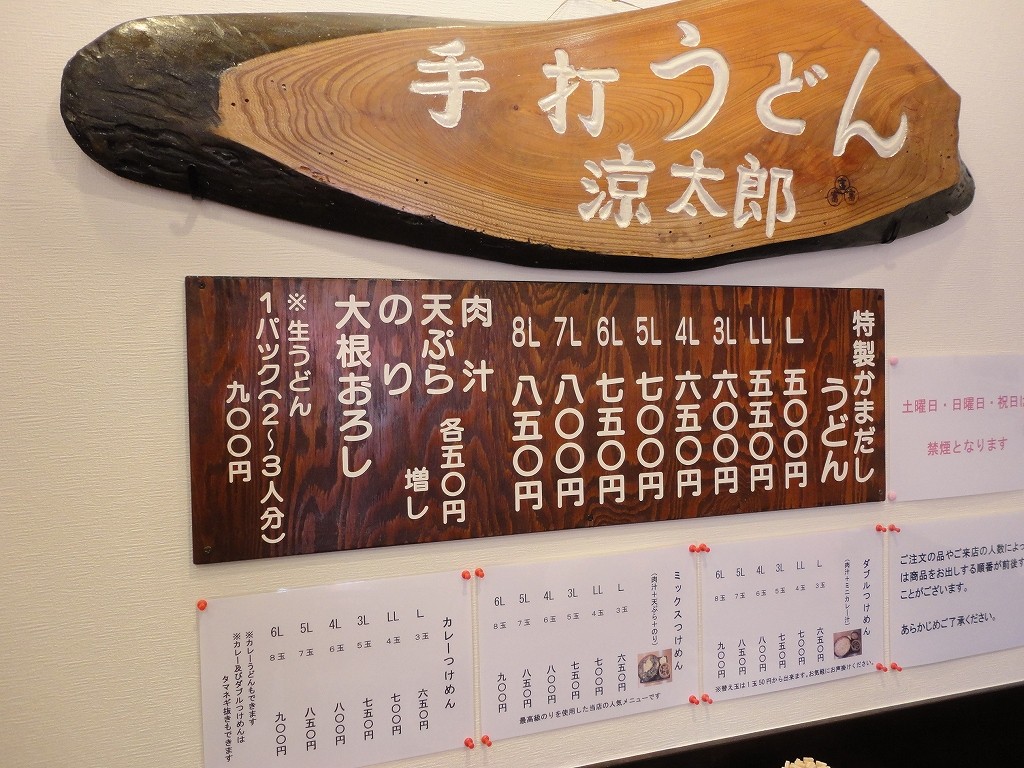 手打うどん
涼太郎
特製かまだし
うどん
L 五〇〇円
LL 五五〇円
3L 六〇〇円
4L 六五〇円
5L 七〇〇円
6L 七五〇円
7L 八〇〇円
8L 八五〇円
肉汁
天ぷら 各五〇円
のり 増し
大根おろし
※生うどん
1パック(2〜3人分)
九〇〇円
土曜日・日曜日・祝日は
禁煙となります
カレーつけめん
L 3玉 六五〇円
LL 4玉 七〇〇円
3L 5玉 七五〇円
4L 6玉 八〇〇円
5L 7玉 八五〇円
6L 8玉 九〇〇円
※カレーうどんもできます
※カレー及びダブルつけめんは
タマネギ抜きもできます
ミックスつけめん
(肉汁+天ぷら+のり)
L 3玉 六五〇円
LL 4玉 七〇〇円
3L 5玉 七五〇円
4L 6玉 八〇〇円
5L 7玉 八五〇円
6L 8玉 九〇〇円
最高級のりを使用した当店の人気メニューです
ダブルつけめん
(肉汁+ミニカレー汁)
L 3玉 六五〇円
LL 4玉 七〇〇円
3L 5玉 七五〇円
4L 6玉 八〇〇円
5L 7玉 八五〇円
6L 8玉 九〇〇円
※替え玉は1玉50円から出来ます。お気軽にお声掛けください。
ご注文の品やご来店の人数によっ
は商品をお出しする順番が前後す
ことがございます。
あらかじめご了承ください。